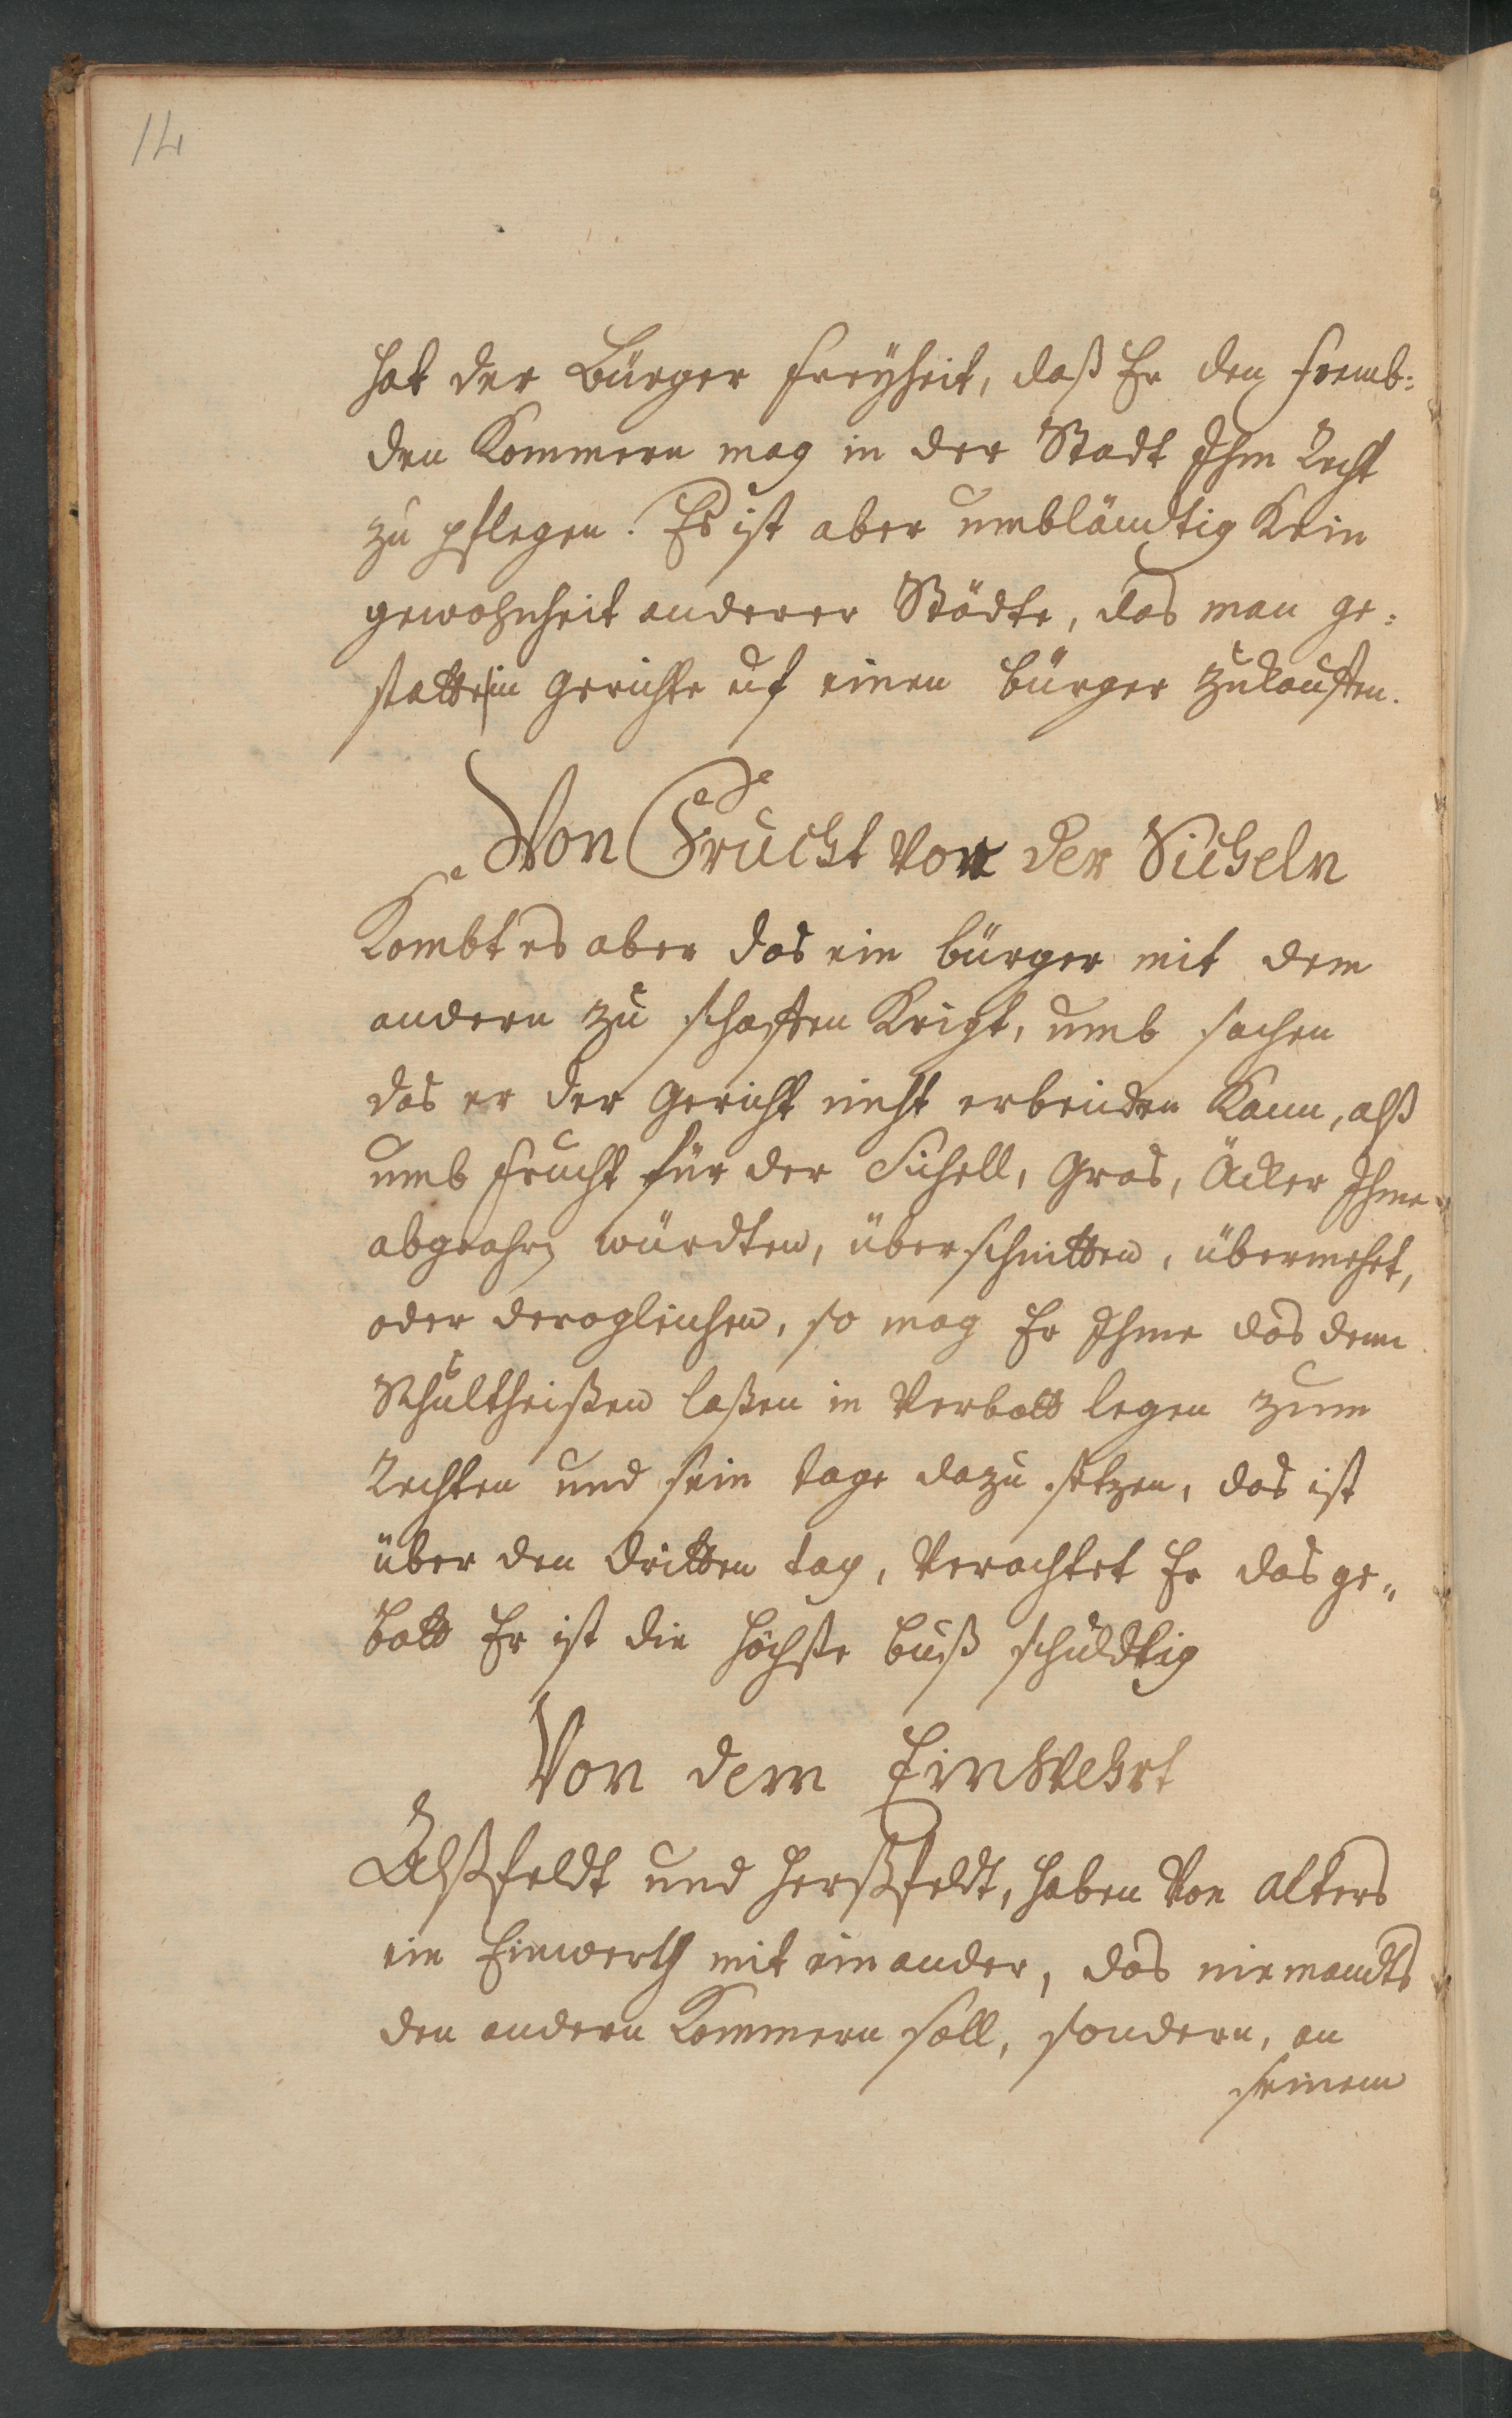 14
hat der Bürger freyheit, daß Er den fremb:
den Kommern mag in der Stadt Ihm Recht
zu pflegen. Es ist aber umbländtig Kein
gewohnheit anderer Städte, das man ge:
statte in Gerichte uf einen bürger zukauffen.
Von Frucht vor der Sicheln
Kombt es aber das ein bürger mit dem
andern zu schaffen Krigt, umb sachen
das er der Gericht nicht erbeiden Kann, alß
umb frucht für der Sichell, Gras, Äcker Ihme
würdten, überschnitten, übermehet,
oder derogleichen, so mag Er Ihme das dem
Schultheißen laßen in Verbott legen zum
Rechten und sein tage dazu setzen, das ist
über den dritten tag, Verachtet Er das ge„
bott Er ist die höchste buß schuldtig
Von dem Einwehrt
Alßfeldt und Herßfeldt, haben Von alters
ein Einwerth mit einander, das niemandts
den andern Kommern soll, sondern, an
seinem